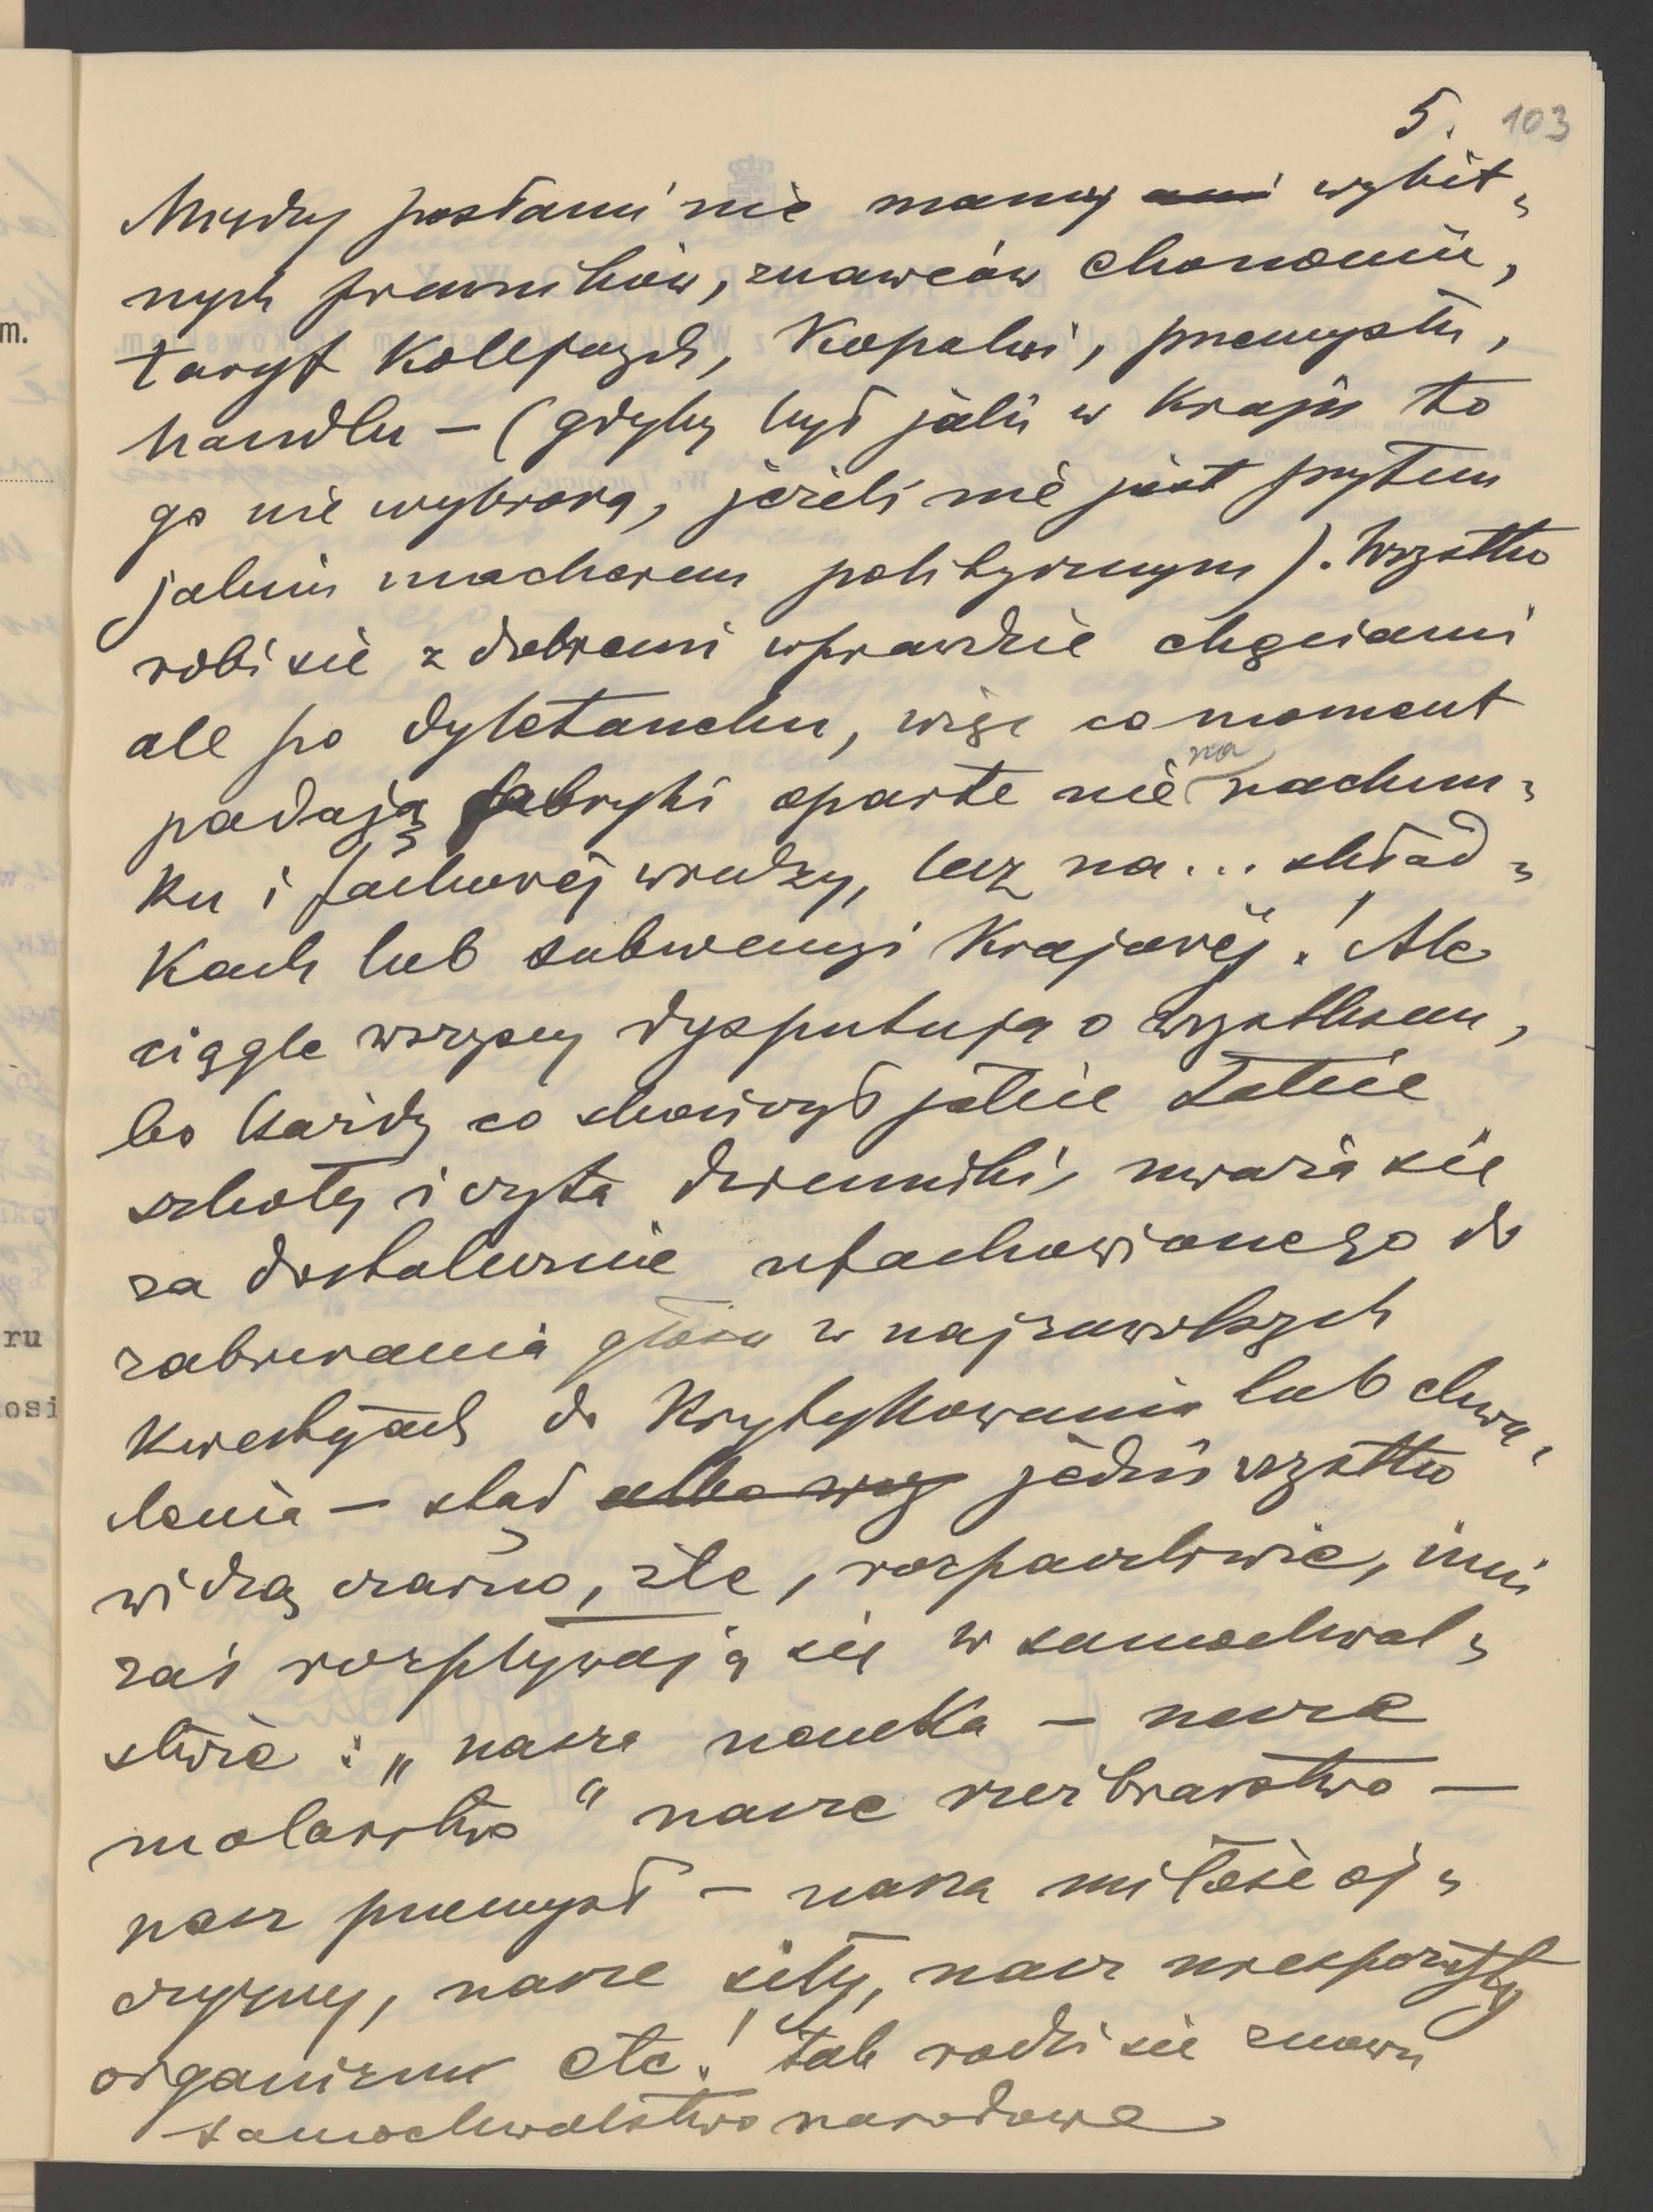 5. 103
Między posłami nie mamy ani wybit=
nych prawników, znawców ekonomii,
taryf kolejowych, kopalni, przemysłu,
handlu — (gdyby był jakiś w kraju to
go nie wybiorą, jeżeli nie jest przytem
jakimś macherem politycznym). Wszystko
robi sie z dobremi wprawdzie chęciami
ale po dyletancku, więc co moment
padają fabryki oparte nie na rachun=
ku i fachowej wiedzy, lecz na... skład=
kach lub subwencyi krajowéj! Ale
ciągle wszyscy dysputują o wszystkiem,
bo każdy co skończył jakie takie
szkoły i czyta dzienniki, uważa sie
za dostatecznie ufachowionego do
zabierania głosu w najzawilszych
kwestyach do krytykowania lub chwa=
lenia — stąd albo wsz jedni wszystko
widzą czarno, źle, rozpaczliwie, inni
zaś rozpływają się w samochwal=
stwie: „nasza nauka — nasze
malarstwo" nasze rzeźbiarstwo —
nasz przemysł — nasza miłość oj=
czyzny, nasze siły, nasz niespożyty
organizm etc.! Tak rodzi sie znowu
samochwalstwo narodowe
m.
ru
osi